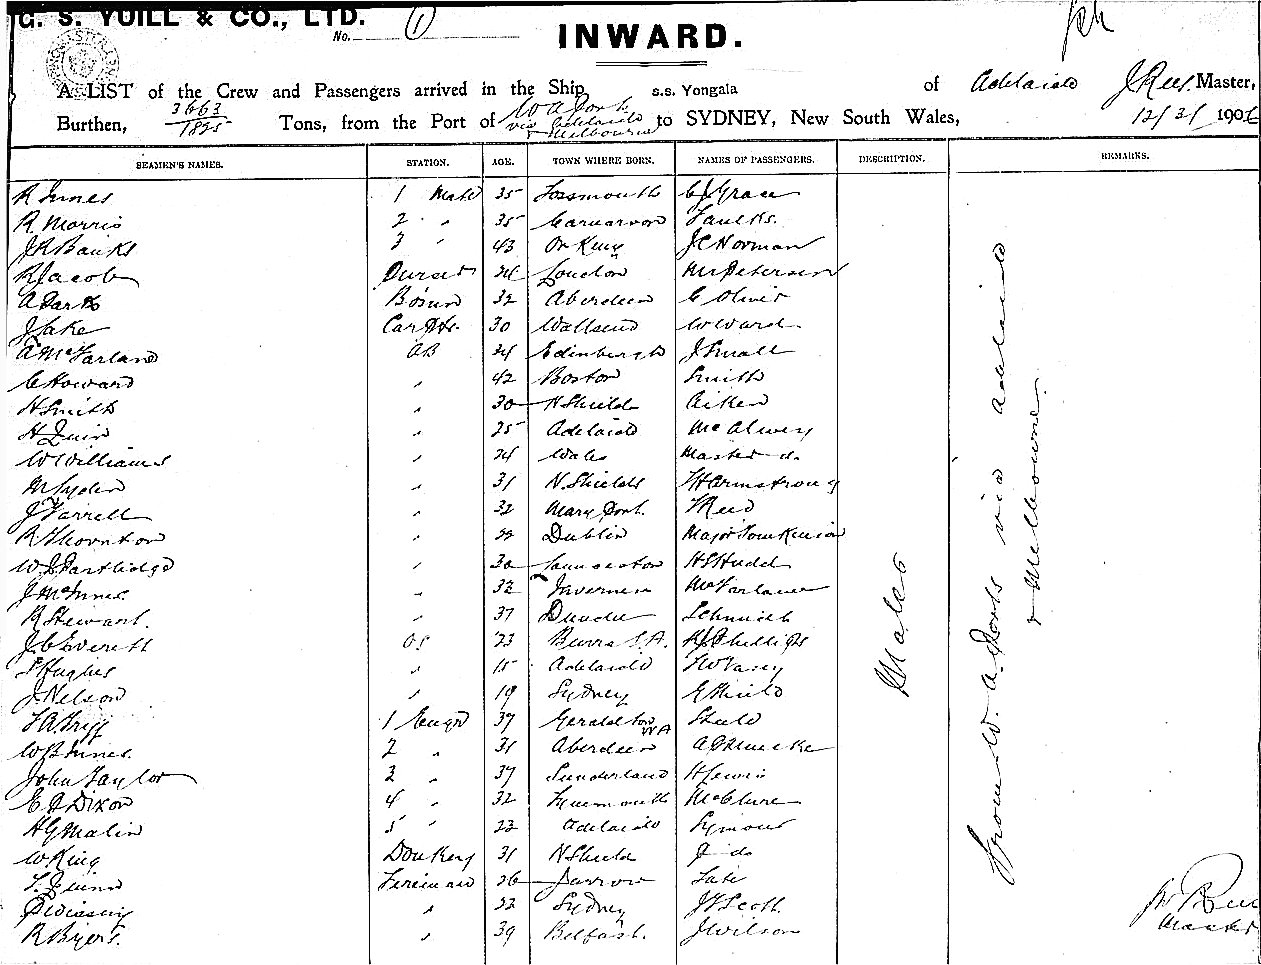 G. S. YUILL & CO., LTD.
No. 1
INWARD.
A LIST of the Crew and Passengers arrived in the Ship s.s. Yongala of Adelaide J Rees Master,
Burthen, 3663/1825 Tons, from the Port of W A Ports via Adelaide & Melbourne to SYDNEY, New South Wales, 12/3/1906
SEAMEN'S NAMES. STATION. AGE. TOWN WHERE BORN. NAMES OF PASSENGERS. DESCRIPTION. REMARKS.
R Innes 1 Mate 35 Lossmouth C J Grace
R. Morris 2 " 35 Carnarvon Faulks.
J R Banks 3 " 43 J C Norman
R Jacob 24 London Mr Petersen
A Dark Bosun 32 Aberdeen C Oliver
J Lake 30 Wallsend W Ward
A McFarland AB 24 Edinburgh J Small
C Howard " 42 Boston Smith
H Smith " 30 N Shields Aiken
H Quin " 25 Adelaide McAlwey
W Williams " 24 Wales Master do
M Lyden " 31 N. Shields H Armstrong
J Farrell " 32 Mary Port. Reid
R Thornton " 22 Dublin Major Tomkinson
W J Partlidge " 30 Launceston H S Hudd
J McInnes " 32 Inverness McFarlane
R Stewart. " 37 Dundee Schmidt
J C Everett OS 23 Burra S.A. Phillips
Hughes " 15 Adelaide Vasey
J Nelson " 19 Sydney
1 Engr 37 Geraldton WA
W B Innes. 2 " 31 Aberdeen A D Muecke
John Taylor 3 " 37 Sunderland H Lewis
E J Dixon 4 " 32 Tynemouth McClure
H G Malin 5 " 23 Adelaide Symour
W King Donkey 31 N Shields J do
Quinn Fireman 26 Jarrow Tate
" 22 Sydney Scott.
R Byers. " 39 Belfast. J Wilson
Males
From W. A. Ports via Adelaide
& Melbourne.
Rees
Master